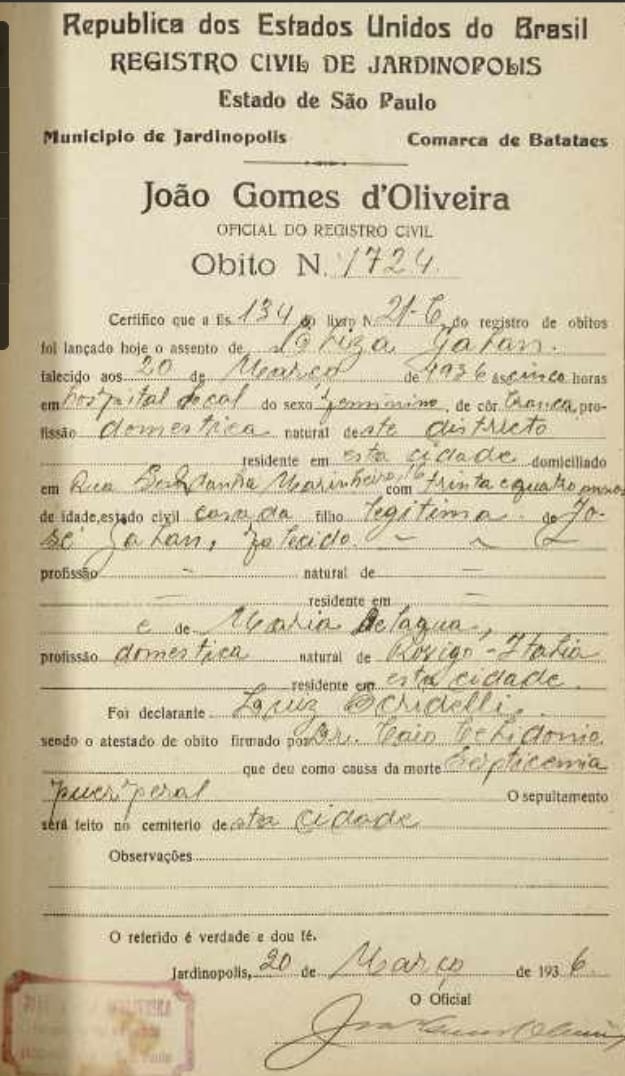 Republica dos Estados Unidos do Brasil
REGISTRO CIVIL DE JARDINOPOLIS
Estado de São Paulo
Municipio de Jardinopolis Comarca de Batataes
João Gomes d'Oliveira
OFICIAL DO REGISTRO CIVIL
Obito N. 1724.
Certifico que a fls. 134 do livro N. 21-C, do registro de obitos
foi lançado hoje o assento de Gatan.
falecido aos 20 de Março de 1936 ás cinco horas
em hospital local do sexo feminino, de côr branca, pro-
fissão domestica natural deste districto
residente em esta cidade domiciliado
em Rua Marinheiro, com trinta e quatro annos
de idade, estado civil casada filho legitima de Jo-
sé Gatan, falecido
profissão — natural de —
— residente em —
e de Maria Delagua,
profissão domestica natural de Rovigo - Italia
residente em esta cidade.
Foi declarante Luiz
sendo o atestado de obito firmado por Dr. Caio
que deu como causa da morte Septicemia
puerperal O sepultamento
será feito no cemiterio desta cidade
Observações
O referido é verdade e dou fé.
Jardinopolis, 20 de Março de 1936.
O Oficial